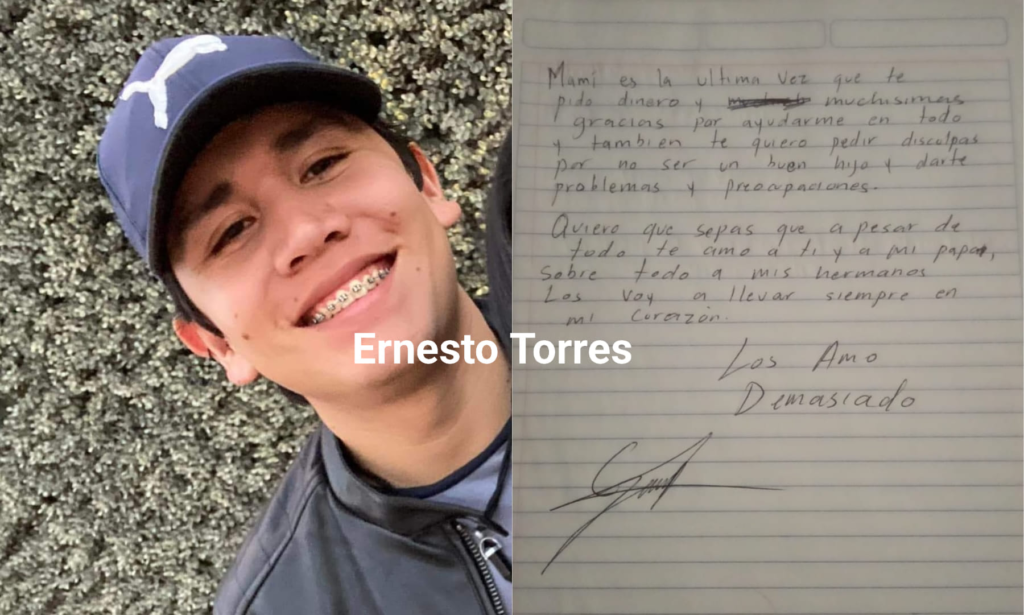 Mami es la ultima vez que te
pido dinero y muchisimas
gracias por ayudarme en todo
y tambien te quiero pedir disculpas
por no ser un buen hijo y darte
problemas y preocupaciones.
Quiero que sepas que a pesar de
todo te amo a ti y a mi papa,
sobre todo a mis hermanos
Los voy a llevar siempre en
mi corazón.
Los Amo
Demasiado
Ernesto Torres